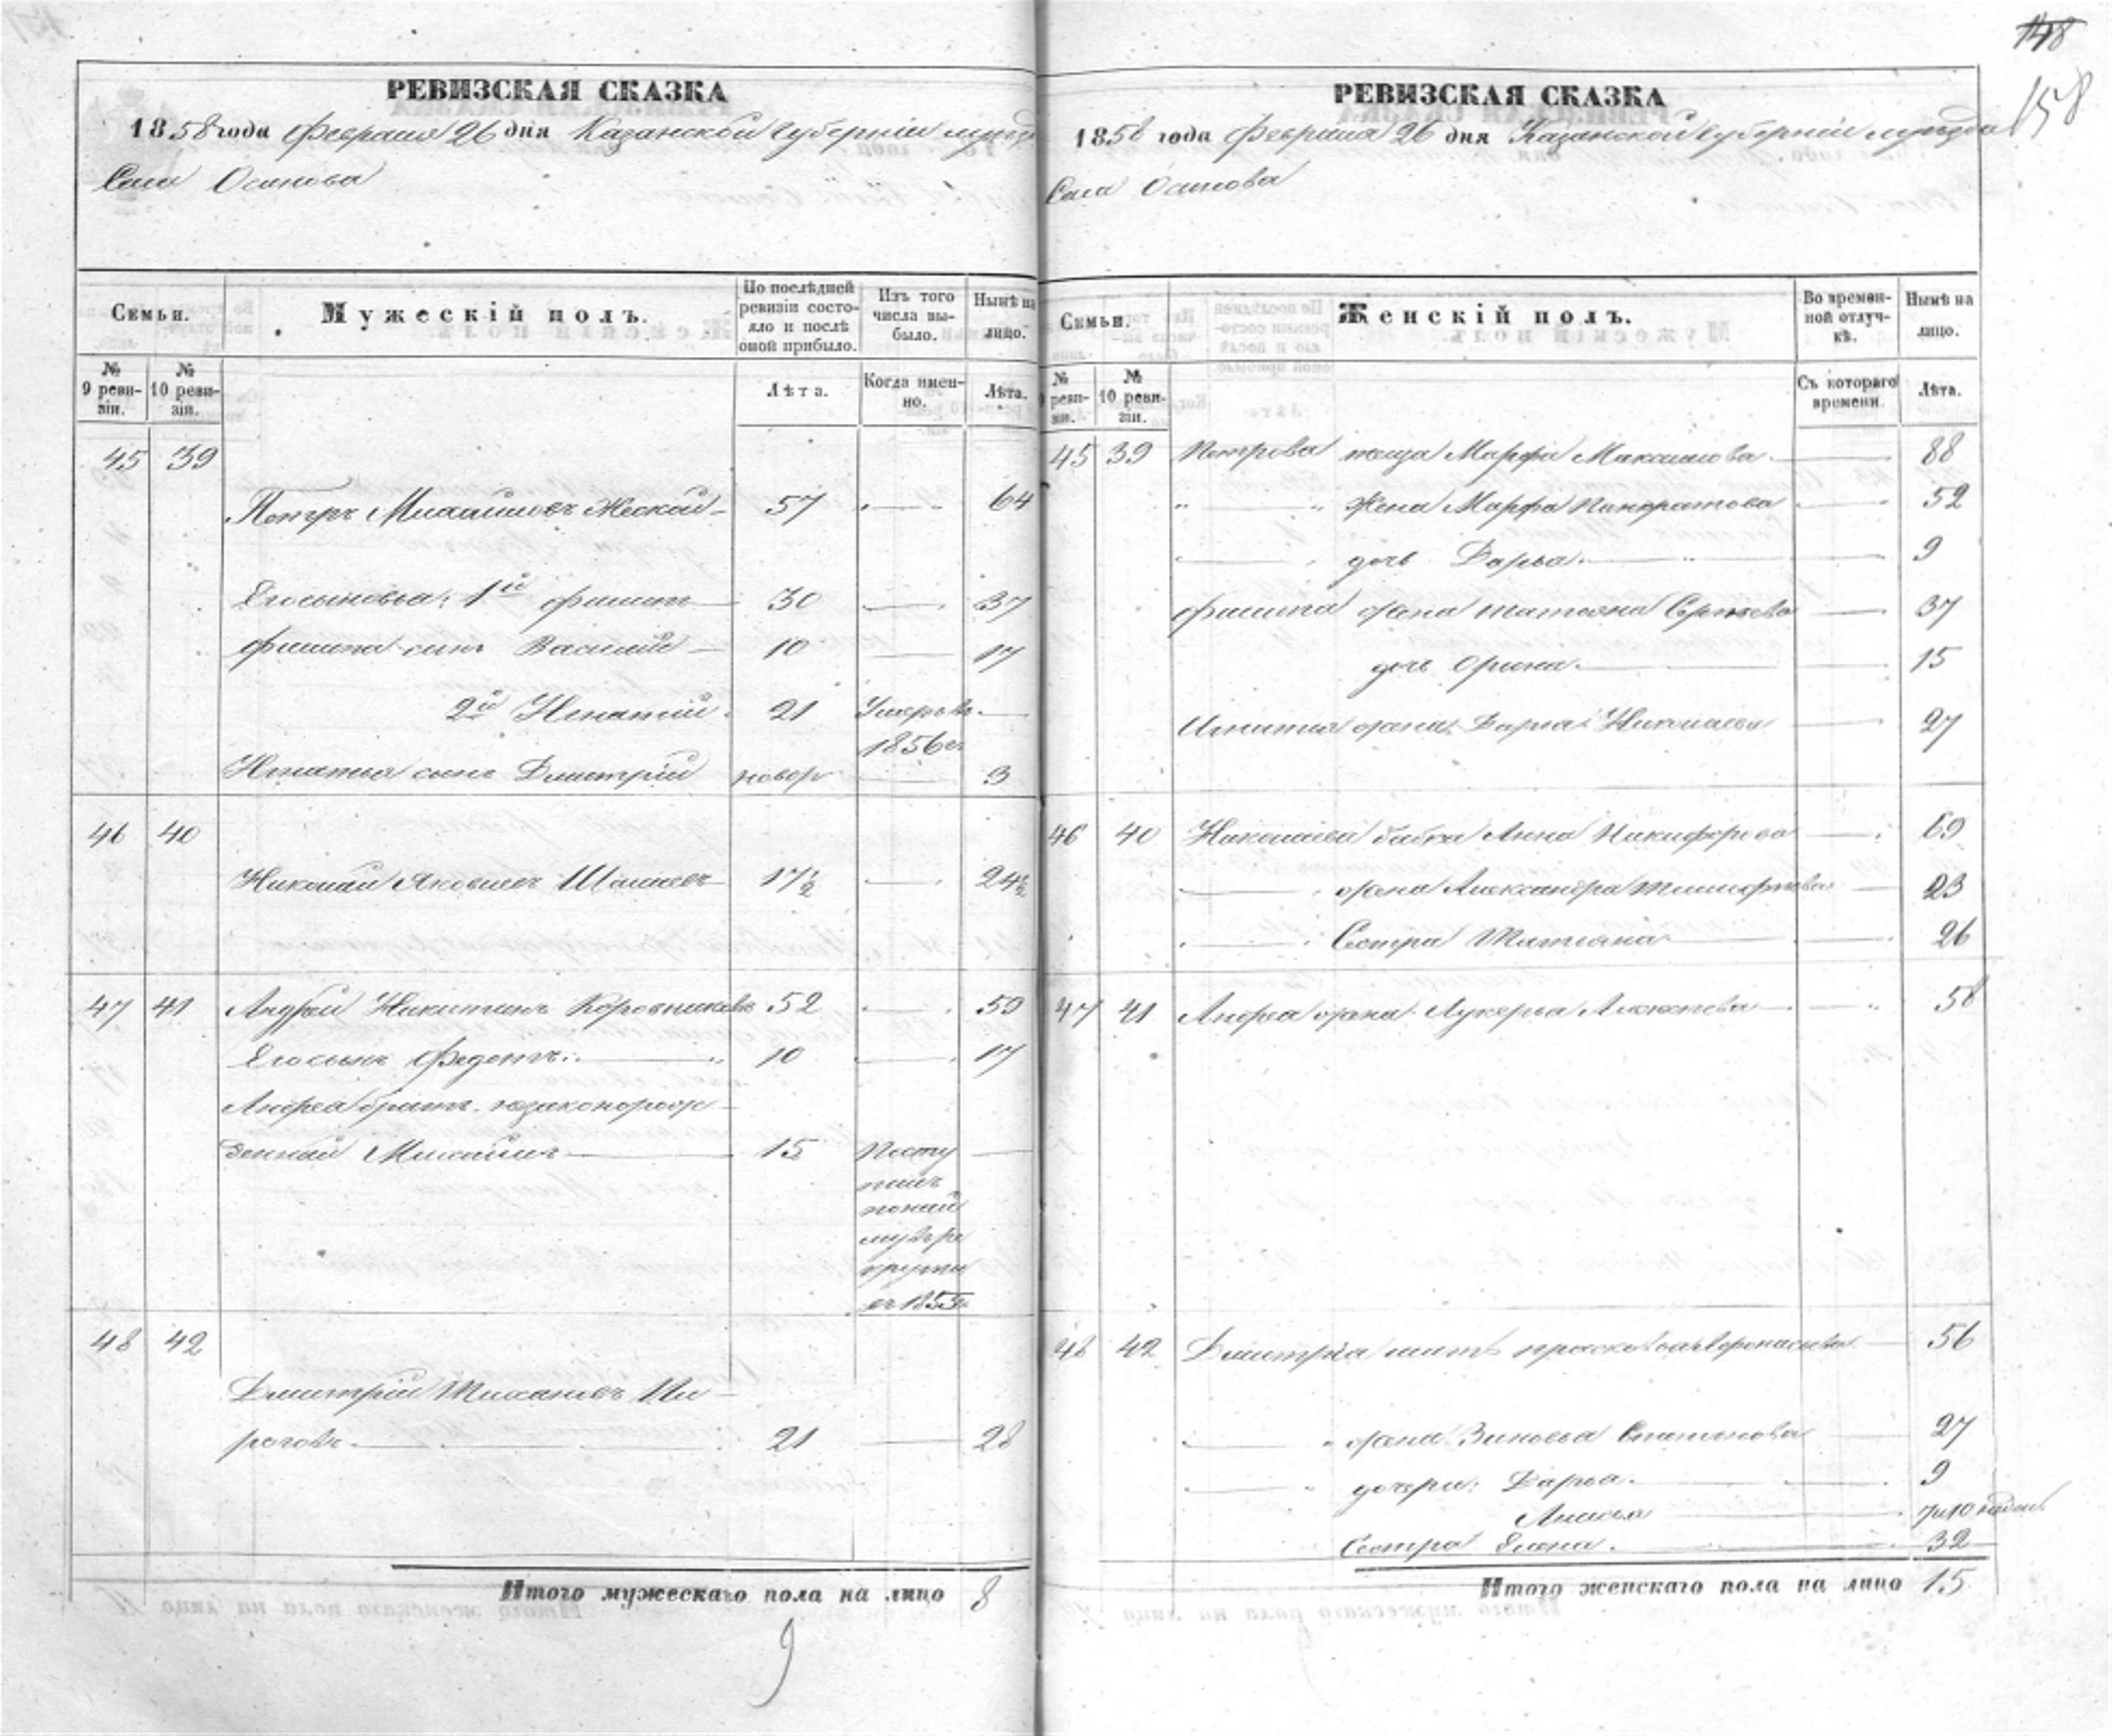 148
158
РЕВИЗСКАЯ СКАЗКА
1858 года Февраля 26 дня Казанской Губернии
Села Осинова
Семьи.
Мужескій полъ.
По послѣдней ревизіи состояло и послѣ оной прибыло.
Изъ того числа выбыло.
Нынѣ на лицо.
№ 9 ревизіи.
№ 10 ревизіи.
Лѣта.
Когда именно.
Лѣта.
45 39
Петръ Михайловъ 57 64
Его сыновья: 1й Филипъ 30 37
Филипа сынъ Василий 10 17
2й Игнатий 21 Умеръ въ 1856 г.
Игнатья сынъ Дмитрий новор 3
46 40
Николай Яковлевъ 17½ 24½
47 41 Андрей Никитинъ Коровниковъ 52 59
Его сынъ Федотъ 10 17
Андрея братъ незаконорож
денный Михайлъ 15 Посту
пилъ
в 1855
48 42
Дмитрий Пи
роговъ 21 28
Итого мужескаго пола на лицо 8
9
РЕВИЗСКАЯ СКАЗКА
1858 года Февраля 26 дня Казанской Губернии
Села Осинова
Семьи.
Женскій полъ.
Во временной отлучкѣ.
Нынѣ на лицо.
№ 9 ревизіи.
№ 10 ревизіи.
Съ котораго времени.
Лѣта.
45 39 Петрова теща Марфа Максимова 88
Жена Марфа Панкратова 52
дочь Дарья 9
Филипа жена Татьяна Сергеева 37
дочь Орина 15
Игнатья жена Дарья Николаева 27
46 40 Николаева бабка Анна Никифорова 69
жена Александра 23
Сестра Татьяна 26
47 41 Андрея жена Лукерья Алексеева 58
48 42 Дмитрия мать Прасковья 56
жена Зиновья 27
дочери: Дарья 9
Анисья
Сестра Елена 32
Итого женскаго пола на лицо 15